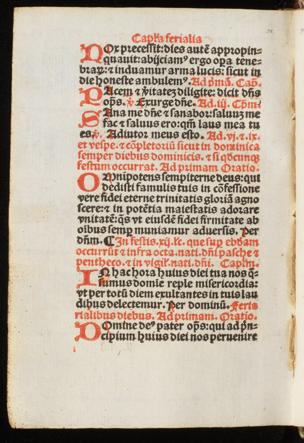 Capl'a ferialia
NOx precessit: dies autē appropin-
quauit: abijciam⁹ ergo opa tene-
brarꝝ: ⁊ induamur arma lucis: sicut in
die honeste ambulem⁹. Ad prīmā. Cap.
PAcem ⁊ v̄itatez diligite: dicit dn̄s
oīps. ℟. Exurge dn̄e. Ad. iij. Cplm̄.
SAna me dn̄e ⁊ sanabor: saluū me
fac ⁊ saluus ero: qm̄ laus mea tu
es. ℣. Adiutor meus esto. Ad. vj. ⁊ .ix.
et vespe. ⁊ cōpletoriū sicut in dominica
semper diebus dominicis. ⁊ si qd̄cunqꝫ
festum occurrat. Ad primam Oratio.
OMnipotens sempiterne deus: qui
dedisti famulis tuis in cōfessione
vere fidei eterne trinitatis gloriā agno
scere: ⁊ in potētia maiestatis adorare
vnitatē: qs̄ vt eiusdē fidei firmitate ab
oībus semp muniamur aduersis. Per
dn̄m. ¶ In festis .xij. lc̄. que sup ebdam
occurrūt ⁊ infra octa. nati. dn̄i pasche ⁊
penthecō. ⁊ in vigil'. nati. dn̄i. Caplm̄.
IN hac hora huius diei tua nos qs̄.
sumus domīe reple misericordia:
vt per totū diem exultantes in tuis lau
dibus delectemur. Per dominū. Feris
rialibus diebus. Ad primam. Oratio.
DOmīne de⁹ pater oīps: qui ad pn̄-
cipium huius diei nos peruenire